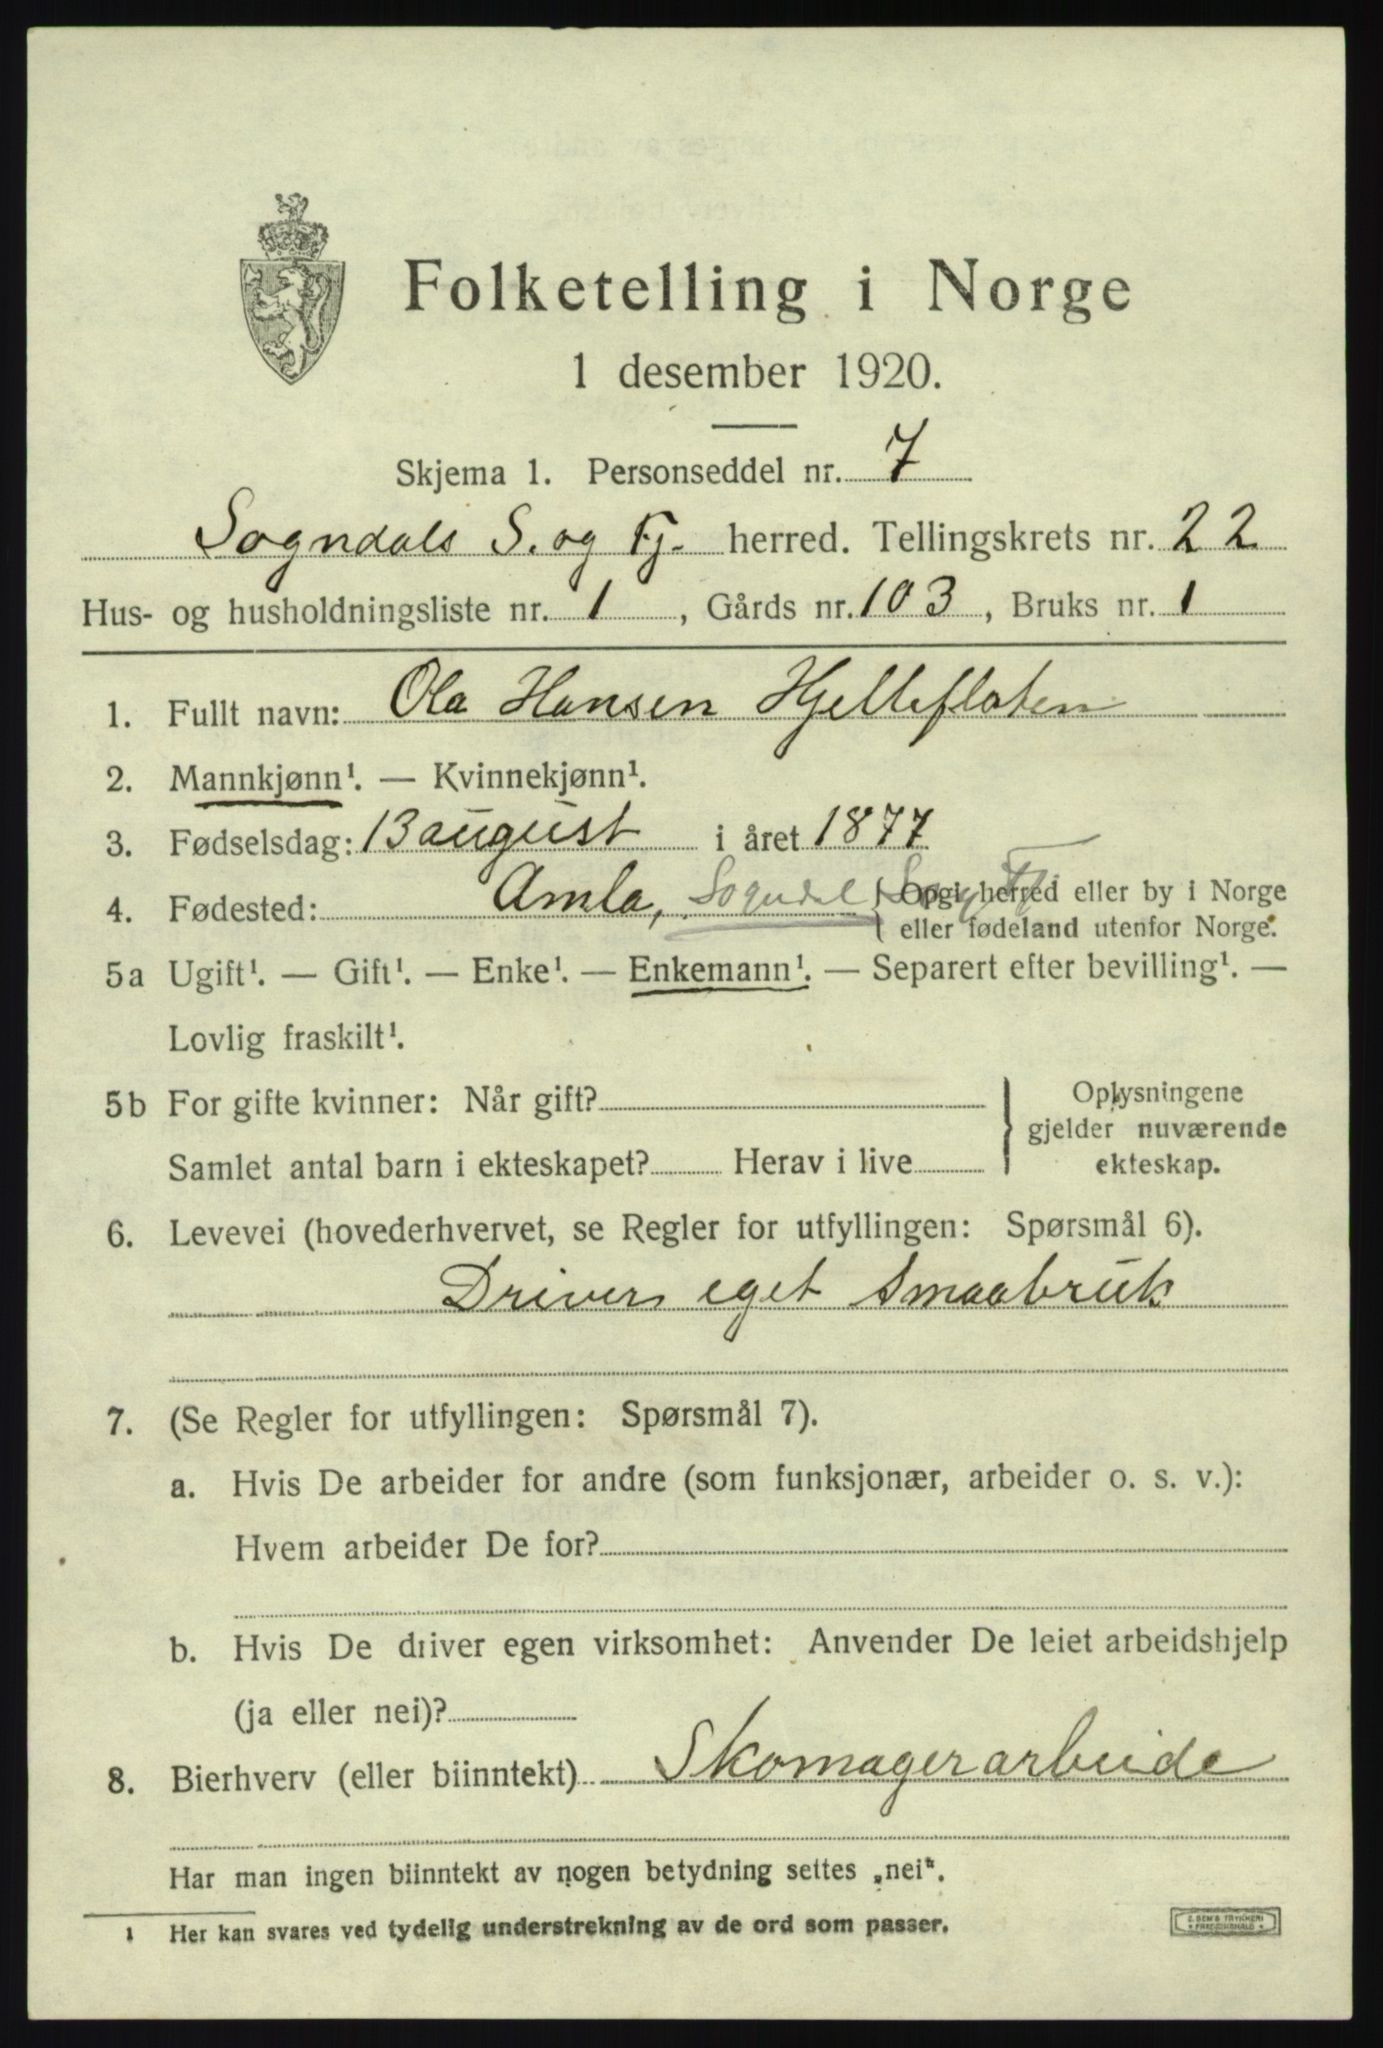 Folketelling i Norge
1 desember 1920.
Skjema 1. Personseddel nr. 7
Sogndals S. og Fj. herred. Tellingskrets nr. 22
Hus- og husholdningsliste nr. 1, Gårds nr. 103, Bruks nr. 1
1. Fullt navn: Ola Hansen Hjelleflaten
2. Mannkjønn¹. — Kvinnekjønn¹.
3. Fødselsdag: 13 august i året 1877
4. Fødested: Amla, Sogndal Sogn Fj { Opgi herred eller by i Norge
eller fødeland utenfor Norge.
5a Ugift¹. — Gift¹. — Enke¹. — Enkemann¹. — Separert efter bevilling¹. —
Lovlig fraskilt¹.
5b For gifte kvinner: Når gift? } Oplysningene
gjelder nuværende
Samlet antal barn i ekteskapet? Herav i live ekteskap.
6. Levevei (hovederhvervet, se Regler for utfyllingen: Spørsmål 6).
Driver eget Smaabruk
7. (Se Regler for utfyllingen: Spørsmål 7).
a. Hvis De arbeider for andre (som funksjonær, arbeider o. s. v.):
Hvem arbeider De for?
b. Hvis De driver egen virksomhet: Anvender De leiet arbeidshjelp
(ja eller nei)?
8. Bierhverv (eller biinntekt) Skomagerarbeide
Har man ingen biinntekt av nogen betydning settes „nei".
1 Her kan svares ved tydelig understrekning av de ord som passer.